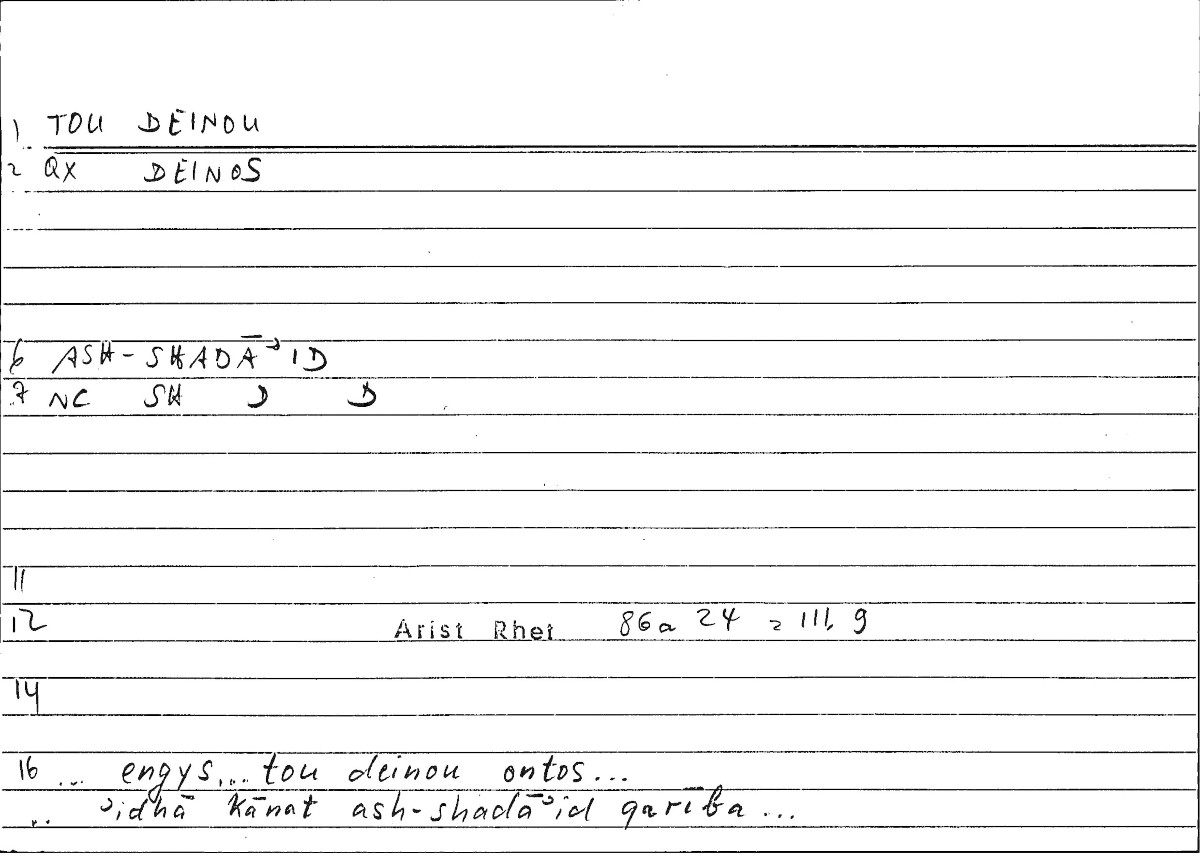 1 TOU DEINOU
2 QX DEINOS
6 ASH-SHADĀʾID
7 NC SH D D
11
12 Arist Rhet 86a 24 = 111, 9
14
16 ... engys ... tou deinou ontos ...
.. ʾidhā kānat ash-shadāʾid qarība ...